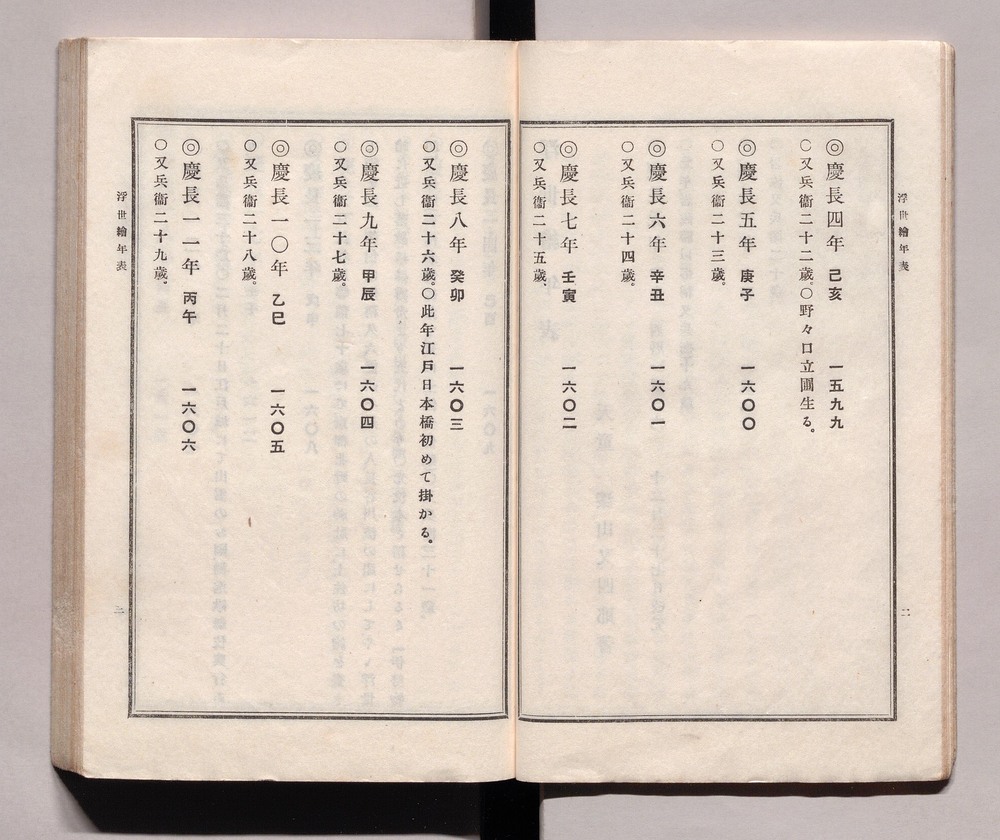 浮世繪年表
二
◎慶長四年 己亥 一五九九
〇又兵衞二十二歲。〇野々口立圃生る。
◎慶長五年 庚子 一六〇〇
〇又兵衞二十三歲。
◎慶長六年 辛丑 一六〇一
〇又兵衞二十四歲。
◎慶長七年 壬寅 一六〇二
〇又兵衞二十五歲。
◎慶長八年 癸卯 一六〇三
〇又兵衞二十六歲。〇此年江戶日本橋初めて掛かる。
◎慶長九年 甲辰 一六〇四
〇又兵衞二十七歲。
◎慶長一〇年 乙巳 一六〇五
〇又兵衞二十八歲。
◎慶長一一年 丙午 一六〇六
〇又兵衞二十九歲。
浮世繪年表